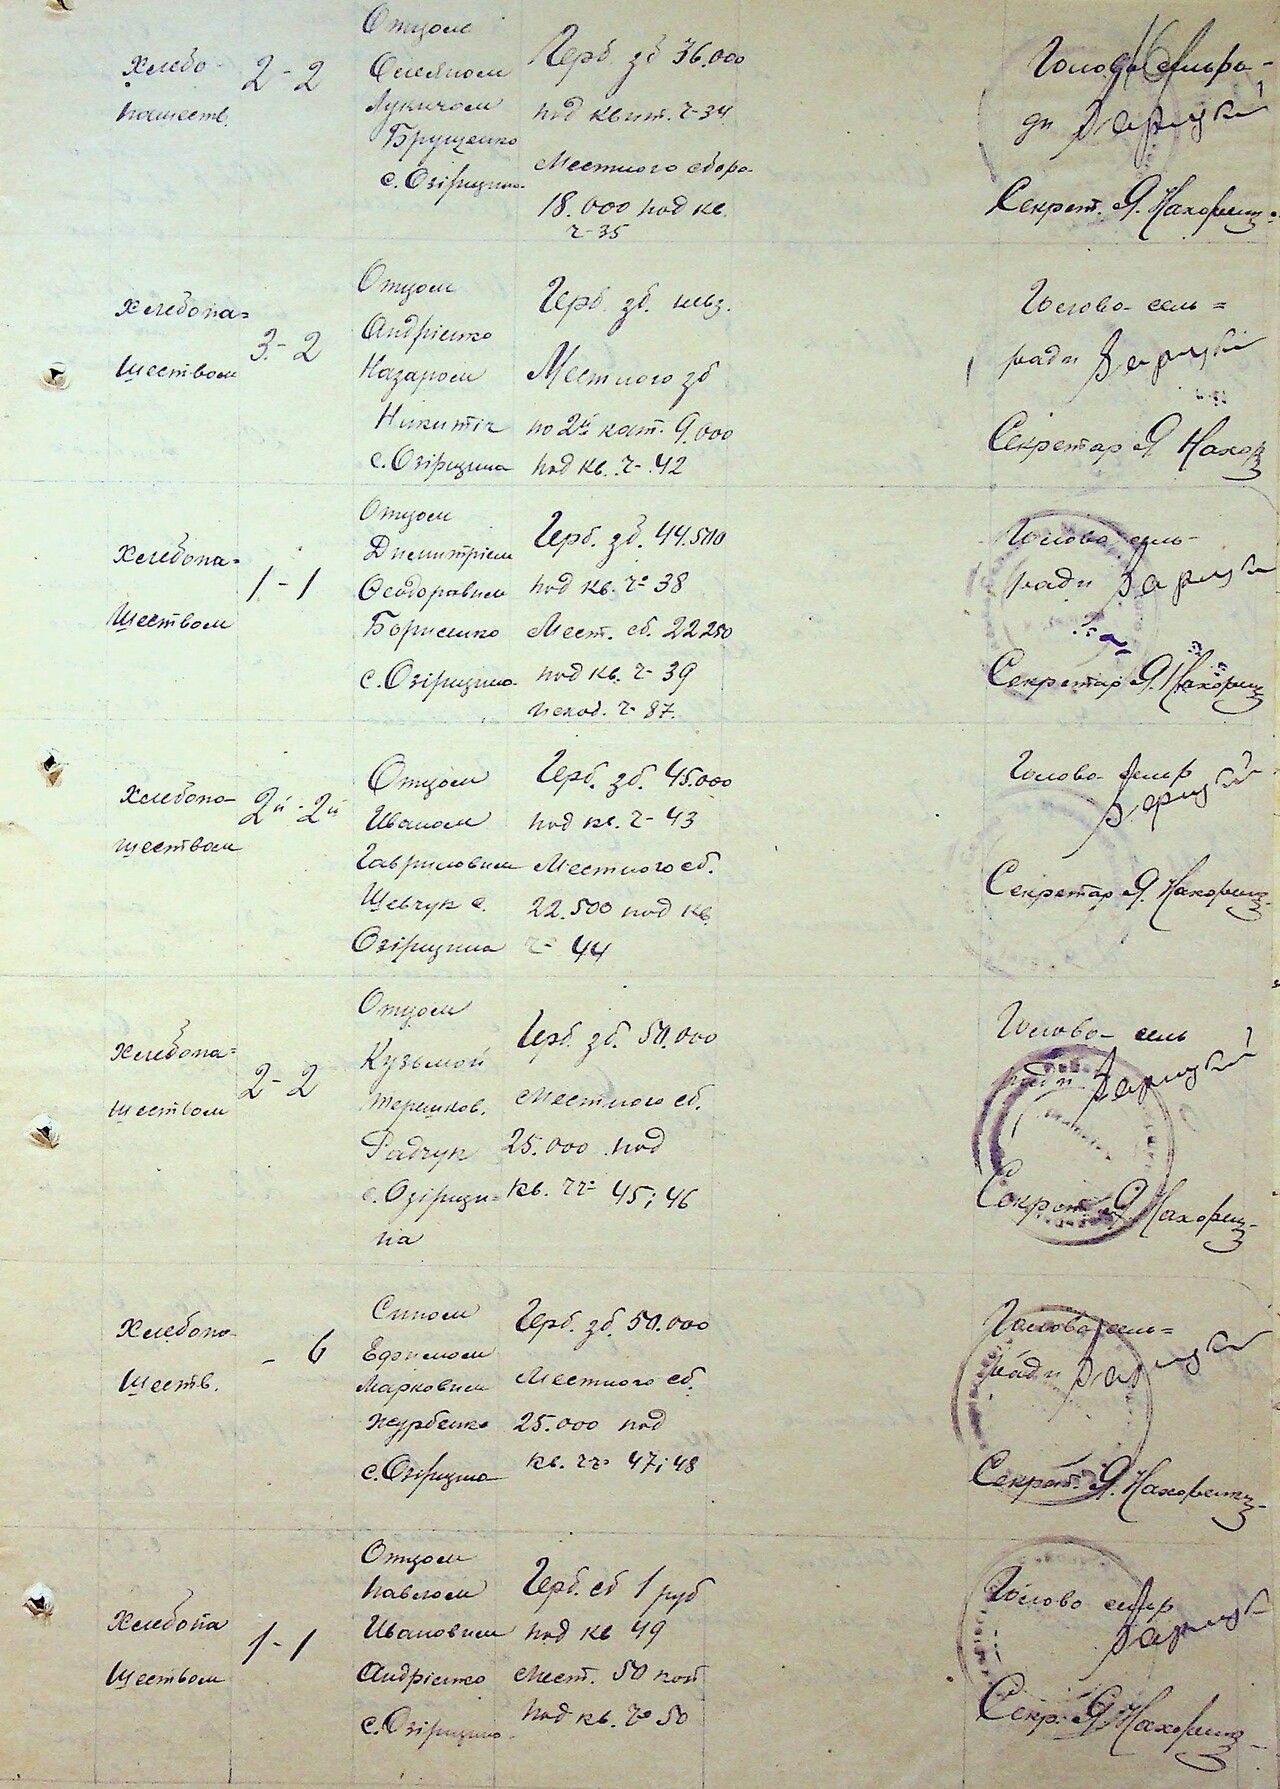 Хлебо-
пашеств.
2-2
Отцом
Семеном
Лукичом
Брущенко
с. Озірщина
Герб. зб 36.000
под квит. ч-34
Местного сбора
18.000 под кв.
ч-35
Голова сельра-
ди
Секрет. Я.
Хлебопа=
шеством
3-2
Отцом
Андрієнко
Назаром
Никитіч
с. Озірщина
Герб. зб.
Местного зб
по 2й кат. 9.000
под кв. ч- 42
Голова- сель=
ради
Секретар Я
Хлебопа=
шеством
1-1
Отцом
Димитрієм
Феодоровим
Борисенко
с. Озірщина
Герб. зб. 44.500
под кв. ч= 38
Мест. сб. 22250
под кв. ч- 39
исход. ч- 87.
Голова сель-
ради
Секретар Я.
Хлебопа-
шеством
2й-2й
Отцом
Иваном
Гавриловим
Шевчук с.
Озірщина
Герб. зб. 45.000
под кв. ч- 43
Местного сб.
22.500 под кв.
ч= 44
Голова-
Секретар Я.
Хлебопа=
шеством
2-2
Отцом
Кузьмой
Терешков.
Радчук
с. Озірщи=
на
Герб. зб. 50.000
Местного сб.
25.000 под
кв. чч= 45; 46
Голова- сель
ради
Секрет. Я.
Хлебопа-
шеств.
- 6
Сином
Ефимом
Марковим
Журбенко
с. Озірщина
Герб. зб. 50.000
Местного сб.
25.000 под
кв. чч= 47; 48
Голова сель=
ради
Секрет. Я.
Хлебопа
шеством
1-1
Отцом
Павлом
Ивановим
Андрієнко
с. Озірщина
Герб. сб 1 руб
под кв 49
Мест. 50 коп
под кв. ч= 50
Голова
Секр. Я